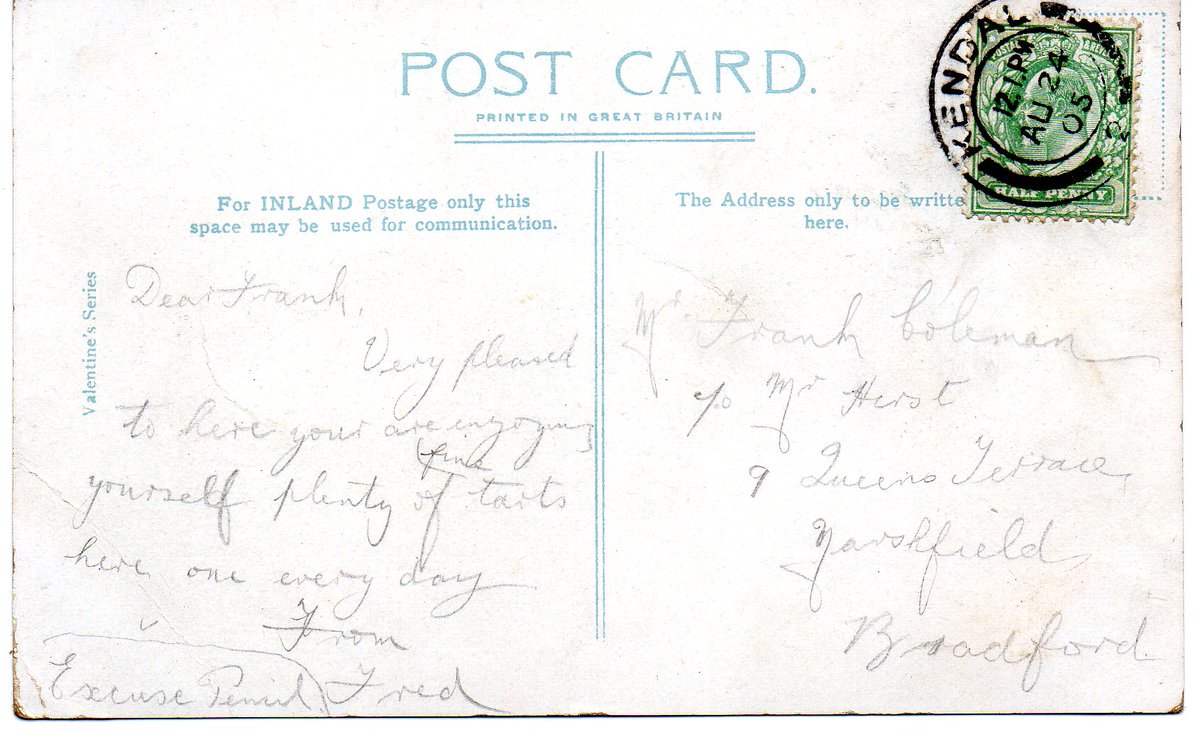 POST CARD.
PRINTED IN GREAT BRITAIN
For INLAND Postage only this
space may be used for communication.
Valentine's Series
Dear Frank,
Very pleased
to here your are enjoying
fine
yourself plenty of tarts
here one every day
From
Excuse Pencil. Fred
KENDAL
12.1PM
AU 24
05
2
POSTAGE & REVENUE
HALF PENNY
The Address only to be writte
here.
Mr. Frank Coleman
c/o Mr Hirst
9 Queens Terrace,
Marshfield,
Bradford.